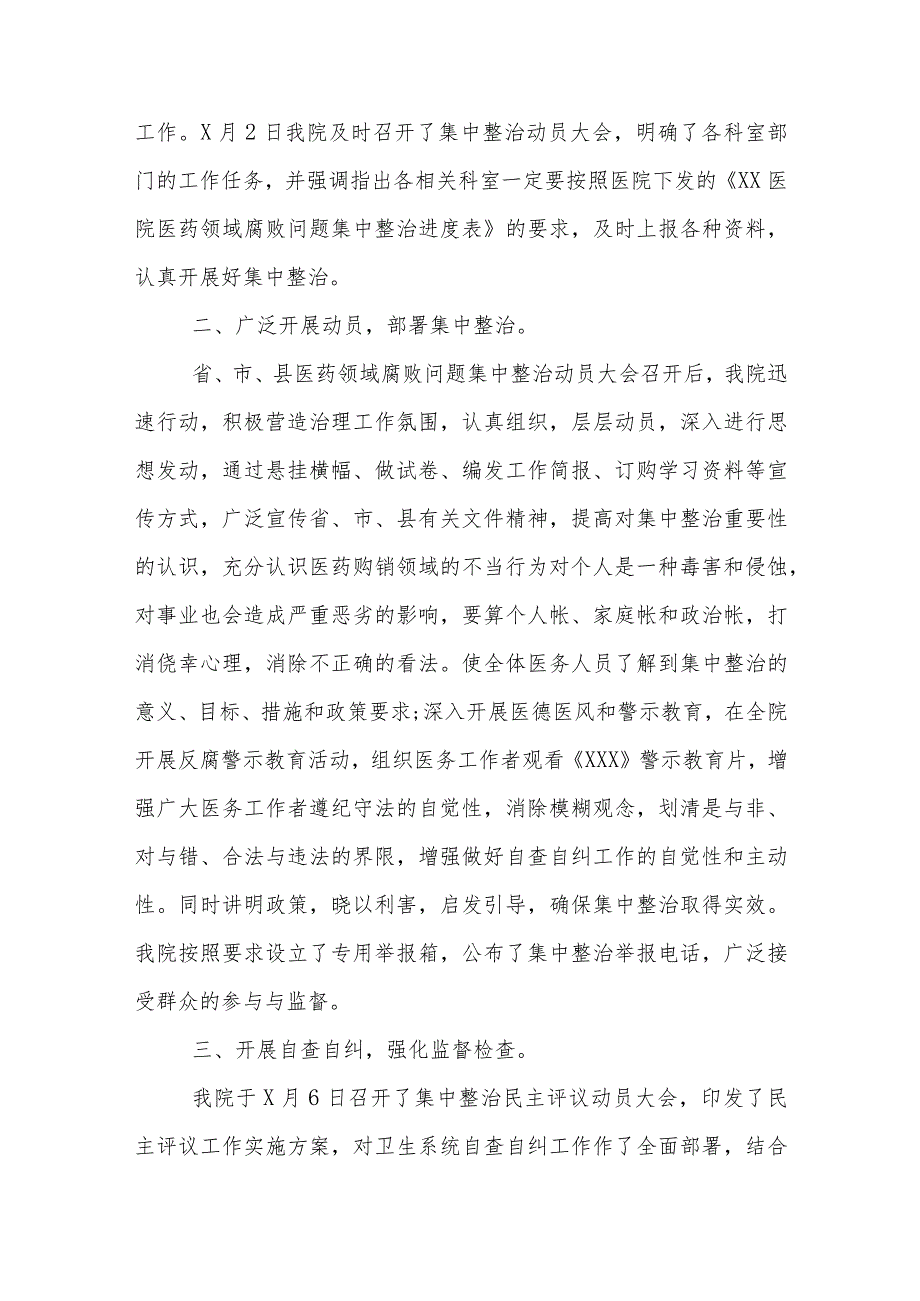 工作。X月2日我院及时召开了集中整治动员大会，明确了各科室部
门的工作任务，并强调指出各相关科室一定要按照医院下发的《XX医
院医药领域腐败问题集中整治进度表》的要求，及时上报各种资料，
认真开展好集中整治。
二、广泛开展动员，部署集中整治。
省、市、县医药领域腐败问题集中整治动员大会召开后，我院迅
速行动，积极营造治理工作氛围，认真组织，层层动员，深入进行思
想发动，通过悬挂横幅、做试卷、编发工作简报、订购学习资料等宣
传方式，广泛宣传省、市、县有关文件精神，提高对集中整治重要性
的认识，充分认识医药购销领域的不当行为对个人是一种毒害和侵蚀，
对事业也会造成严重恶劣的影响，要算个人帐、家庭帐和政治帐，打
消侥幸心理，消除不正确的看法。使全体医务人员了解到集中整治的
意义、目标、措施和政策要求;深入开展医德医风和警示教育，在全院
开展反腐警示教育活动，组织医务工作者观看《XXX》警示教育片，增
强广大医务工作者遵纪守法的自觉性，消除模糊观念，划清是与非、
对与错、合法与违法的界限，增强做好自查自纠工作的自觉性和主动
性。同时讲明政策，晓以利害，启发引导，确保集中整治取得实效。
我院按照要求设立了专用举报箱，公布了集中整治举报电话，广泛接
受群众的参与与监督。
三、开展自查自纠，强化监督检查。
我院于X月6日召开了集中整治民主评议动员大会，印发了民
主评议工作实施方案，对卫生系统自查自纠工作作了全面部署，结合